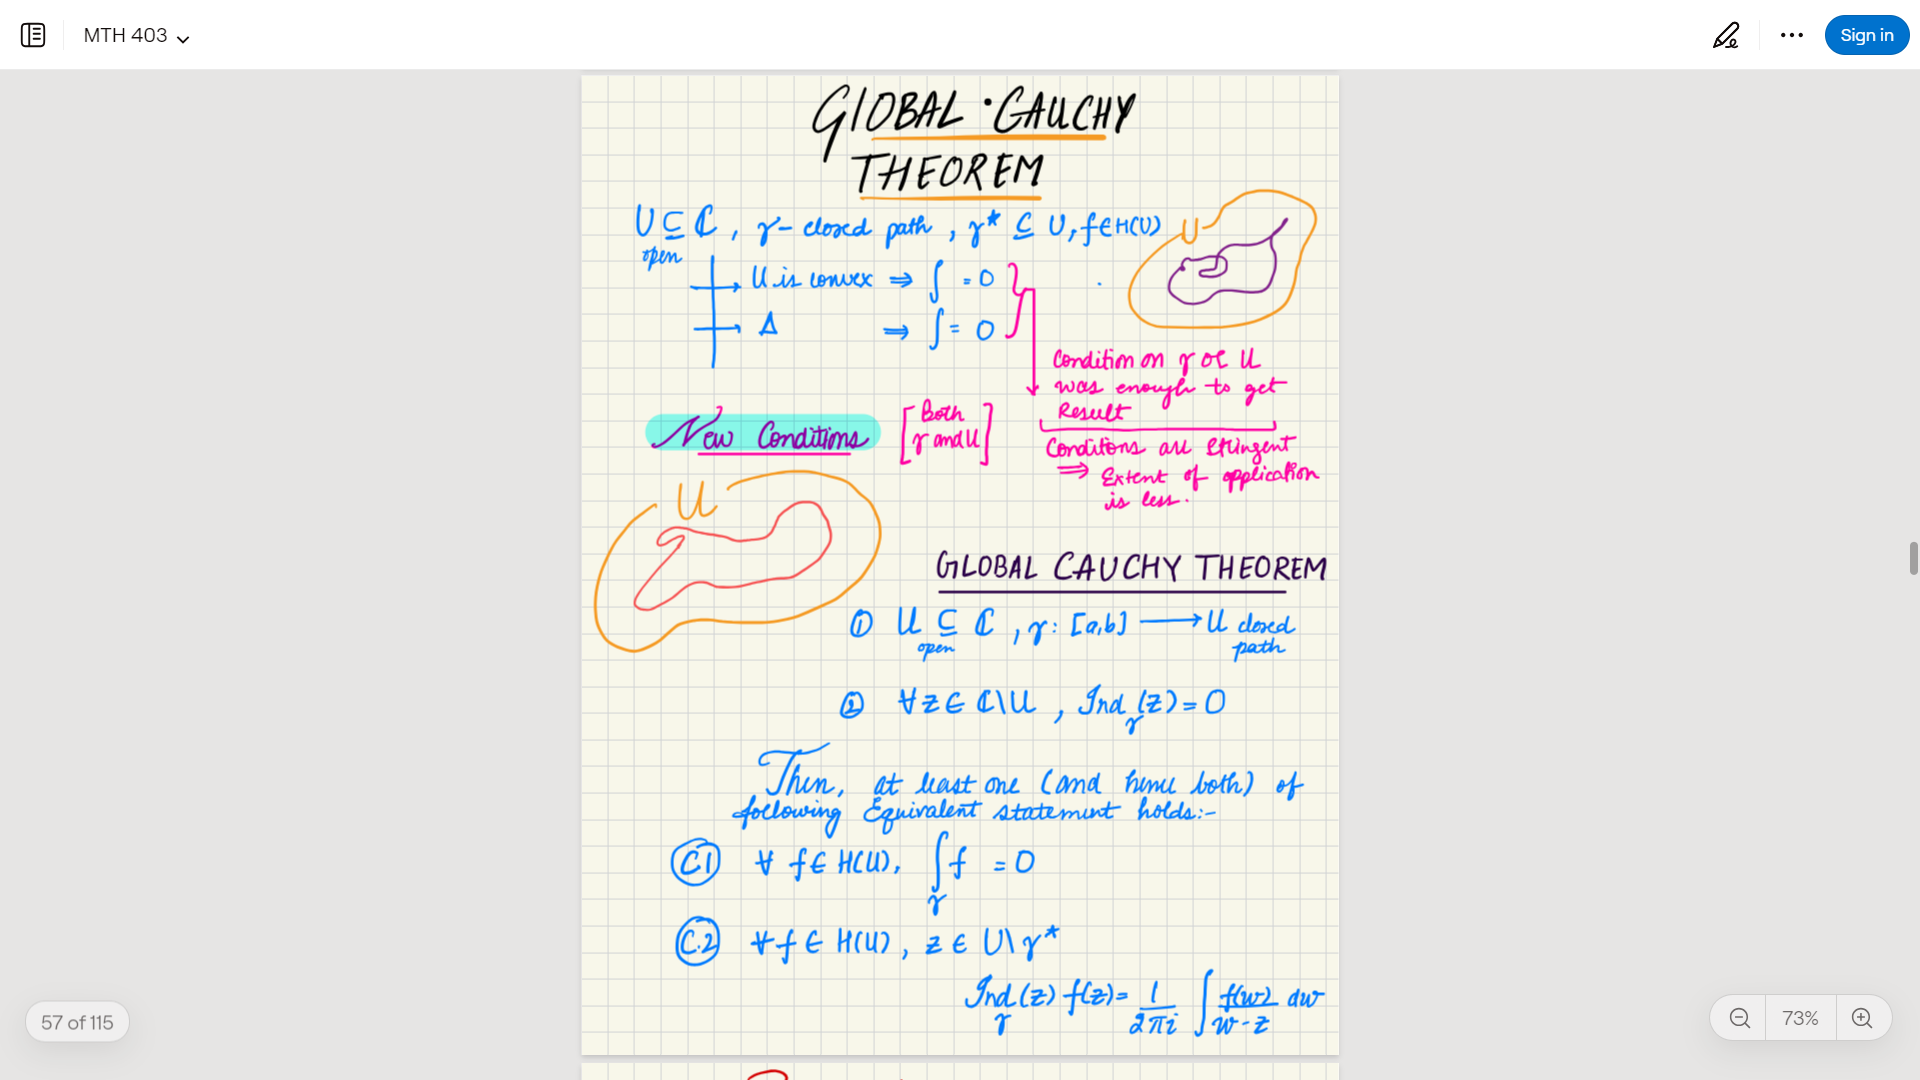 MTH 403
Sign in
GLOBAL CAUCHY
THEOREM
U ⊆ ℂ, γ - closed path, γ* ⊆ U, f ∈ H(U)
open
U
U is convex ⇒ ∫ = 0
Δ ⇒ ∫ = 0
Condition on γ or U
was enough to get
Result
New Conditions [Both γ and U]
Conditons are stringent
⇒ Extent of application
is less.
U
GLOBAL CAUCHY THEOREM
① U ⊆ ℂ, γ: [a,b] ⟶ U closed
open path
② ∀ z ∈ ℂ\U, Ind_γ(z) = 0
Then, at least one (and hence both) of
following Equivalent statement holds:-
C1 ∀ f ∈ H(U), ∫_γ f = 0
C.2 ∀ f ∈ H(U), z ∈ U\γ*
Ind_γ(z) f(z) = 1/2πi ∫ f(w)/w-z dw
57 of 115
73%